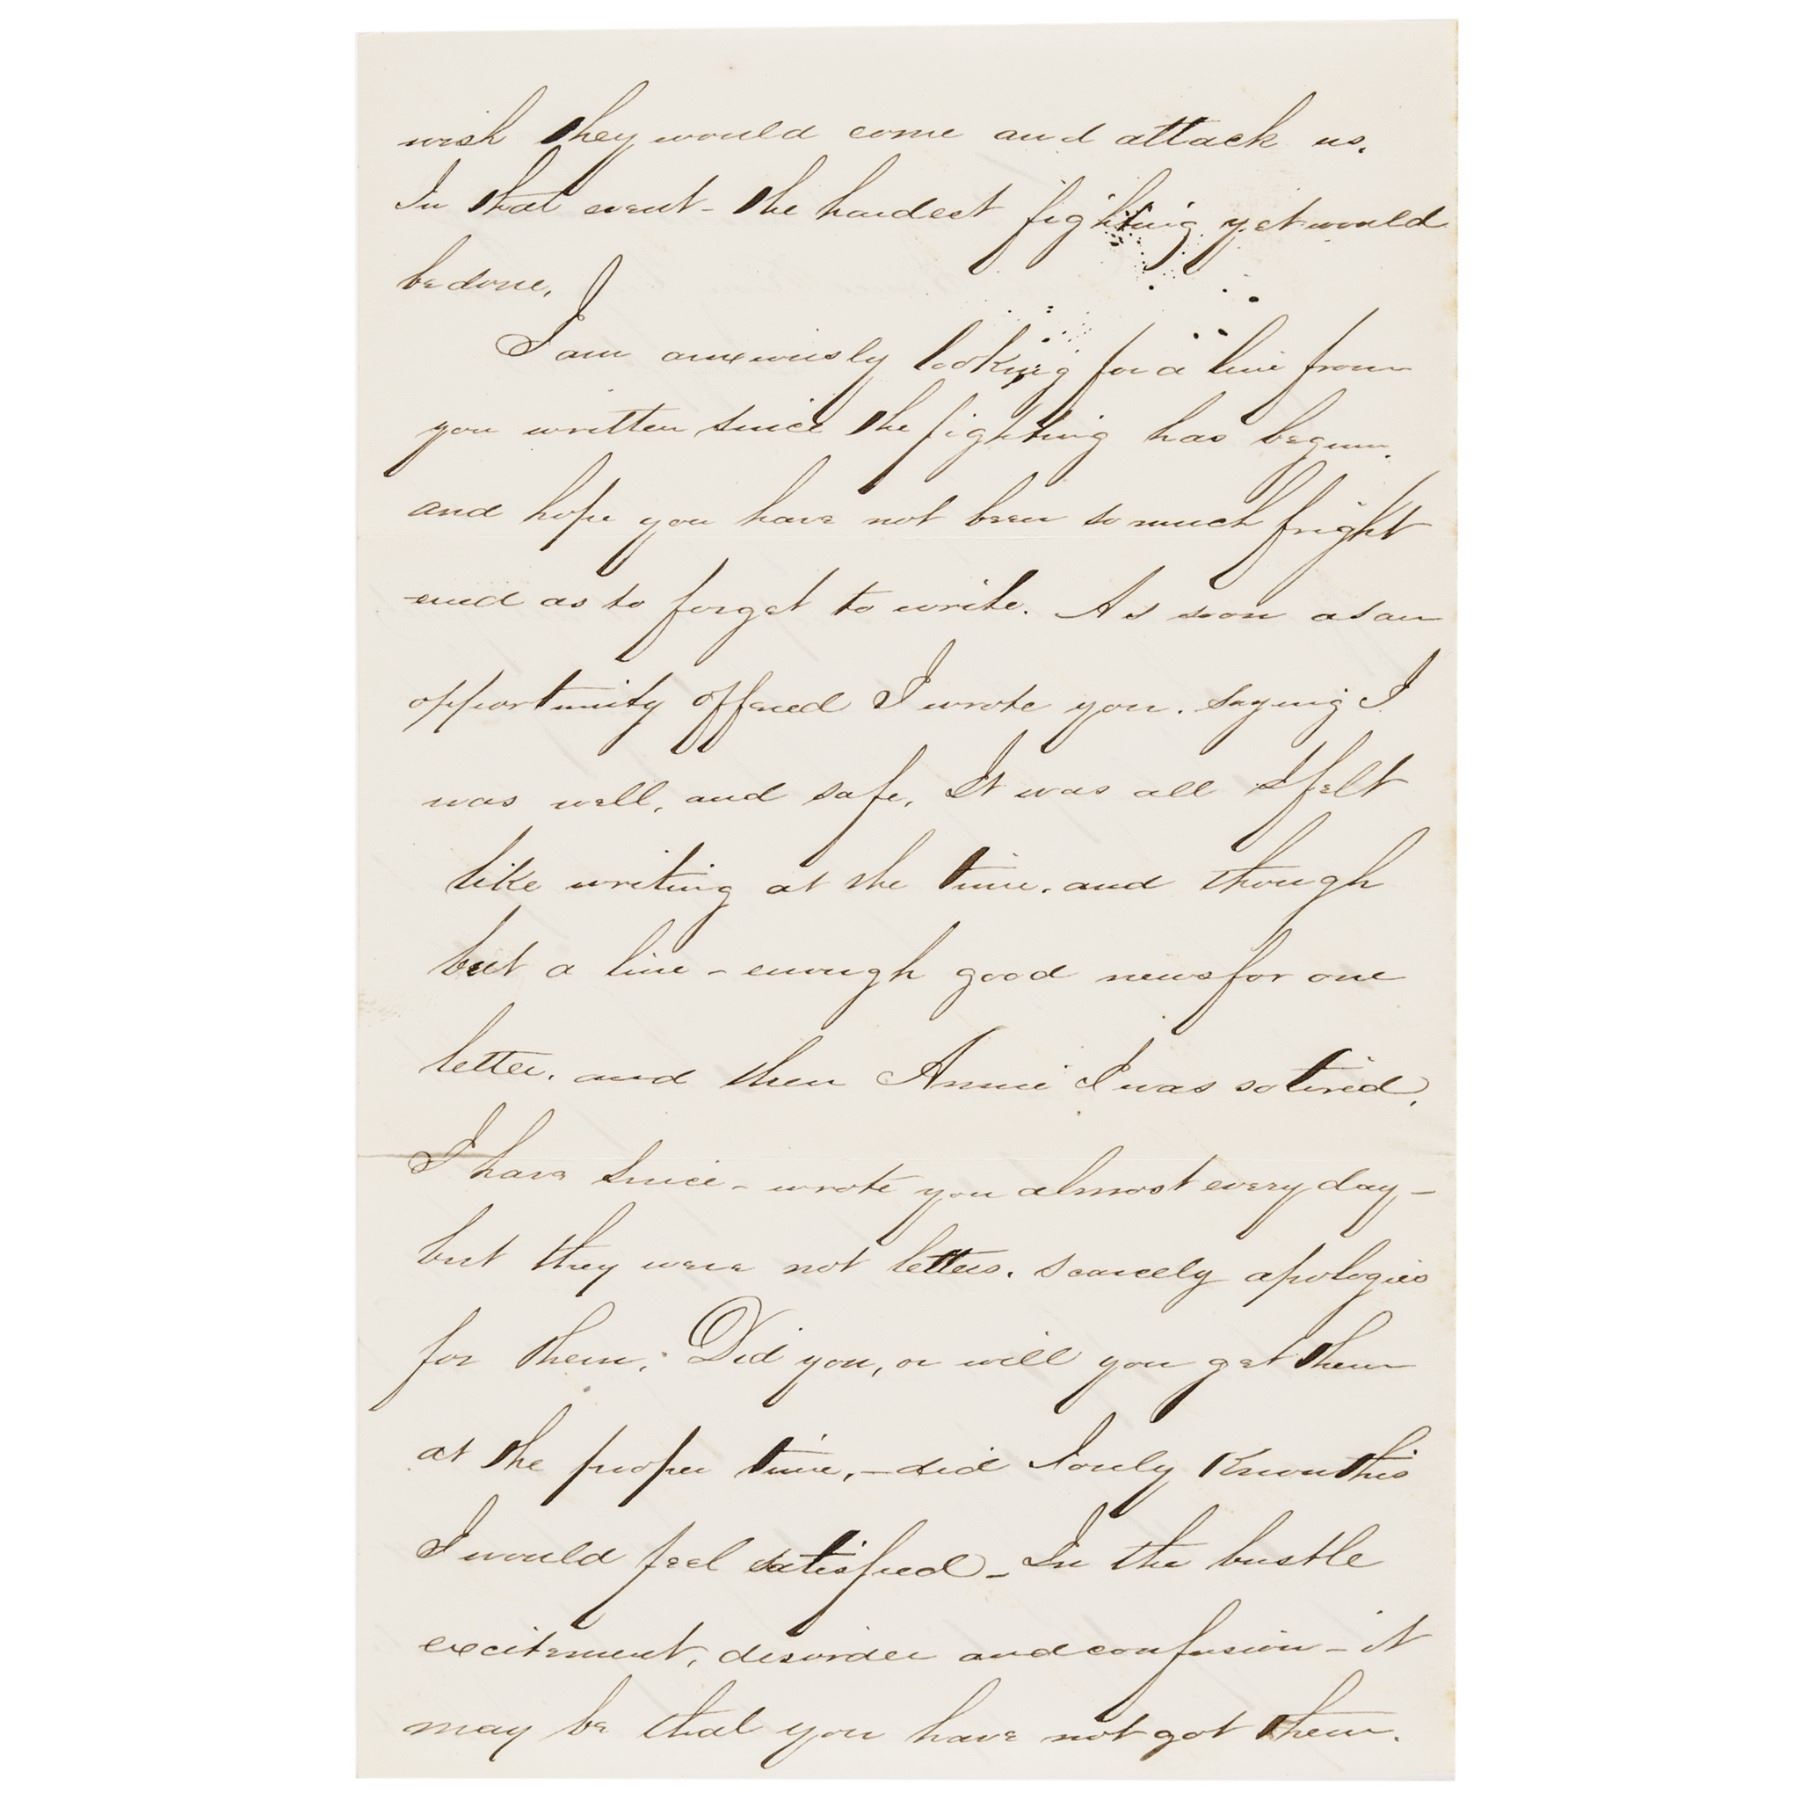 wish they would come and attack us.
In that event - the hardest fighting yet would
be done.
I am anxiously looking for a line from
you written since the fighting has begun.
and hope you have not been so much fright
-ened as to forget to write. As soon as an
opportunity offered I wrote you. saying I
was well, and safe. It was all I felt
like writing at the time. and though
but a line - enough good news for one
letter. and then Annie I was so tired.
I have since - wrote you almost every day -
but they were not letters. scarcely apologies
for them. Did you, or will you get them
at the proper time, - did I only know this
I would feel satisfied - In the bustle
excitement, disorder and confusion - it
may be that you have not got them.